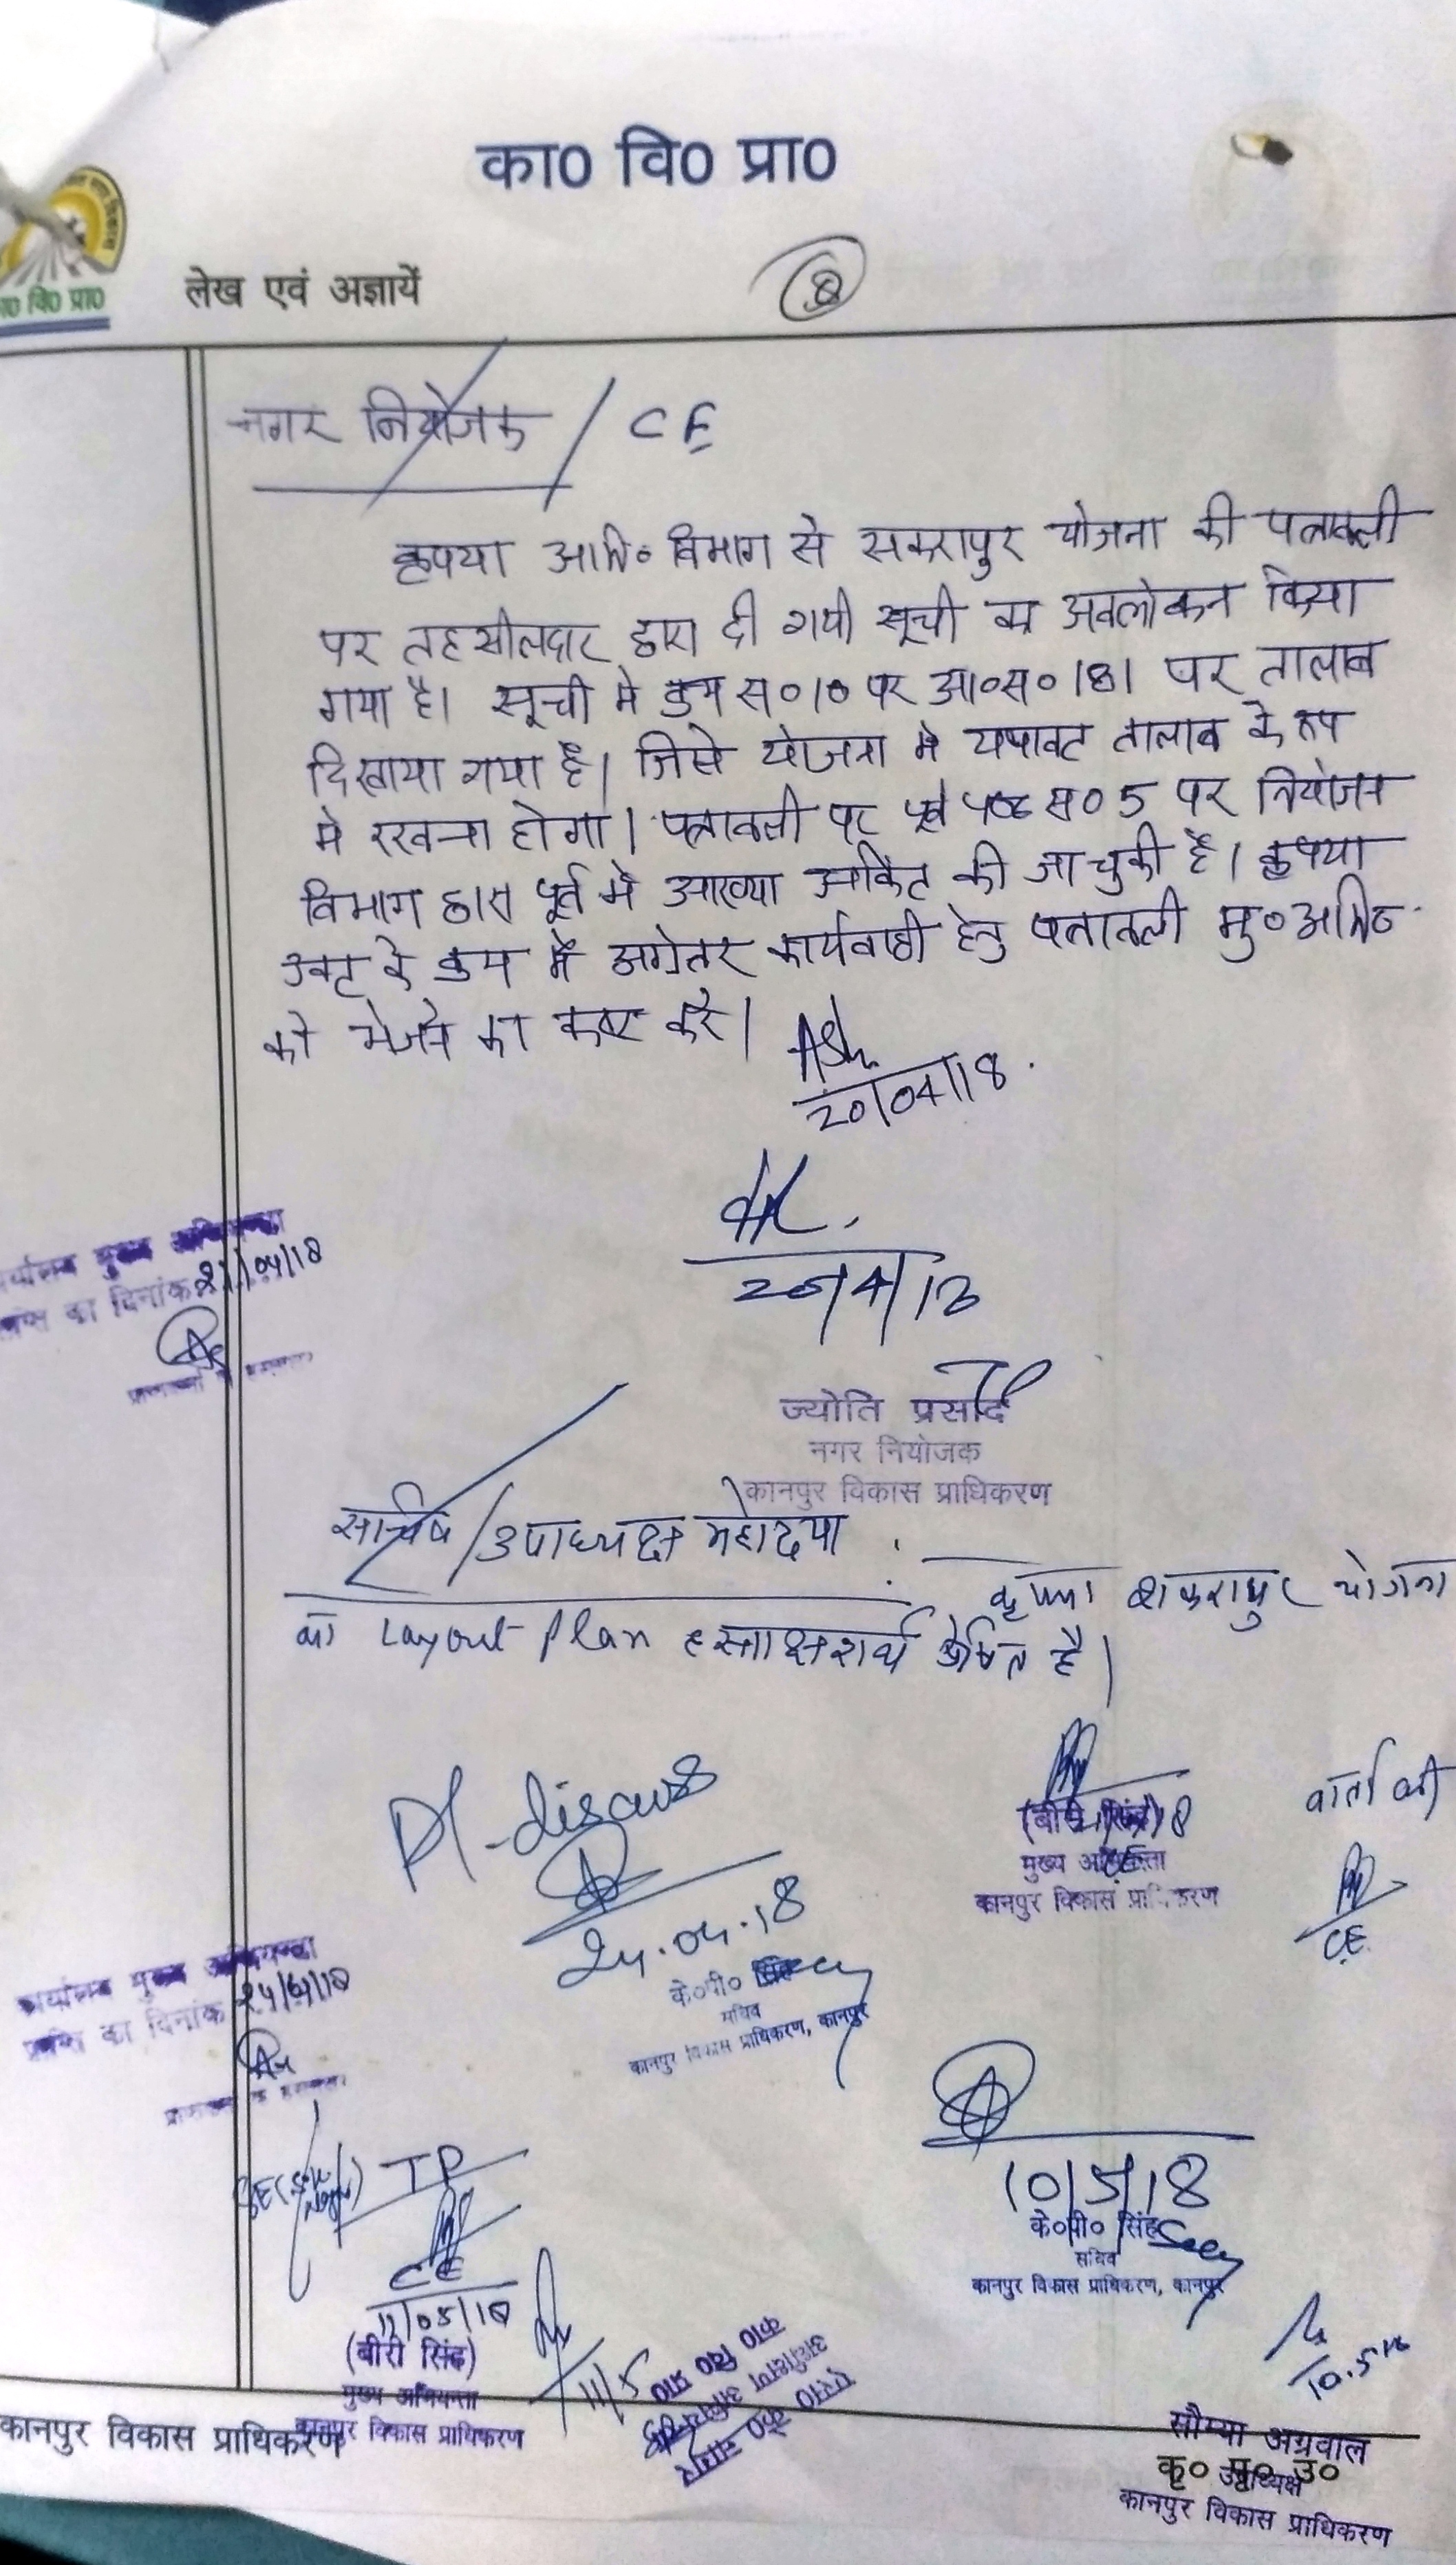 का0 वि0 प्रा0
का0 वि0 प्रा0
लेख एवं अज्ञायें
8
नगर नियोजक / CE
कृपया अभि० विभाग से सकरापुर योजना की पत्रावली
पर तहसीलदार द्वारा दी गयी सूची का अवलोकन किया
गया है। सूची मे क्रम स० 10 पर आ०स० 181 पर तालाब
दिखाया गया है। जिसे योजना मे यथावत तालाब के रूप
मे रखना होगा। पत्रावली पर पूर्व पृष्ठ स० 5 पर नियोजन
विभाग द्वारा पूर्व मे आख्या अंकित की जा चुकी है। कृपया
उक्त के क्रम में अग्रेतर कार्यवाही हेतु पत्रावली मु० अभि०
को भेजने का कष्ट करे।
20/04/18.
20/4/18
TP
ज्योति प्रसाद
नगर नियोजक
कानपुर विकास प्राधिकरण
कार्यालय मुख्य अभियन्ता
प्राप्ति का दिनांक 21/04/18
सचिव / उपाध्यक्ष महोदया :
कृपया शकरापुर योजना
का Layout Plan हस्ताक्षरार्थ प्रेषित है।
(बीरी सिंह)
मुख्य अभियन्ता
कानपुर विकास प्राधिकरण
वार्ता की
CE
Pl-discuss
24.04.18
के०पी० सिंह Secy
सचिव
कानपुर विकास प्राधिकरण, कानपुर
कार्यालय मुख्य अभियन्ता
प्राप्ति का दिनांक 24/4/18
10/5/18
के०पी० सिंह Secy
सचिव
कानपुर विकास प्राधिकरण, कानपुर
TP
CE
11/05/18
(बीरी सिंह)
मुख्य अभियन्ता
कानपुर विकास प्राधिकरण
11/5
का0 वि0 प्रा0
10.5.18
सौम्या अग्रवाल
उपाध्यक्ष
कानपुर विकास प्राधिकरण
कानपुर विकास प्राधिकरण
कृ० पृ० उ०